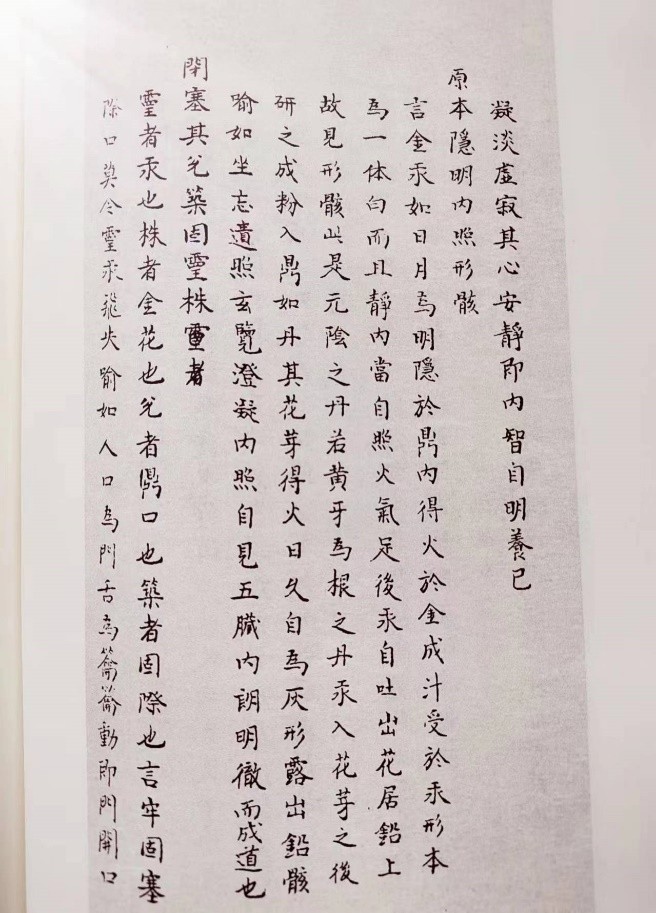 凝淡虛寂其心安靜即內智自明養已
原本隱明內照形骸
言金汞如日月為明隱於鼎內得火於金成汁受於汞形本
為一体白而且靜內當自照火氣足後汞自吐出花居鉛上
故見形骸此是元陰之丹若黃牙為根之丹汞入花芽之後
研之成粉入鼎如丹其花芽得火日久自為灰形露出鉛骸
喻如坐忘遺照玄覽澄凝內照自見五臟內朗明徹而成道也
閉塞其兌築固靈株靈者
靈者汞也株者金花也兌者鼎口也築者固際也言牢固塞
際口莫令靈汞飛失喻如人口為門舌為籥籥動即門開口